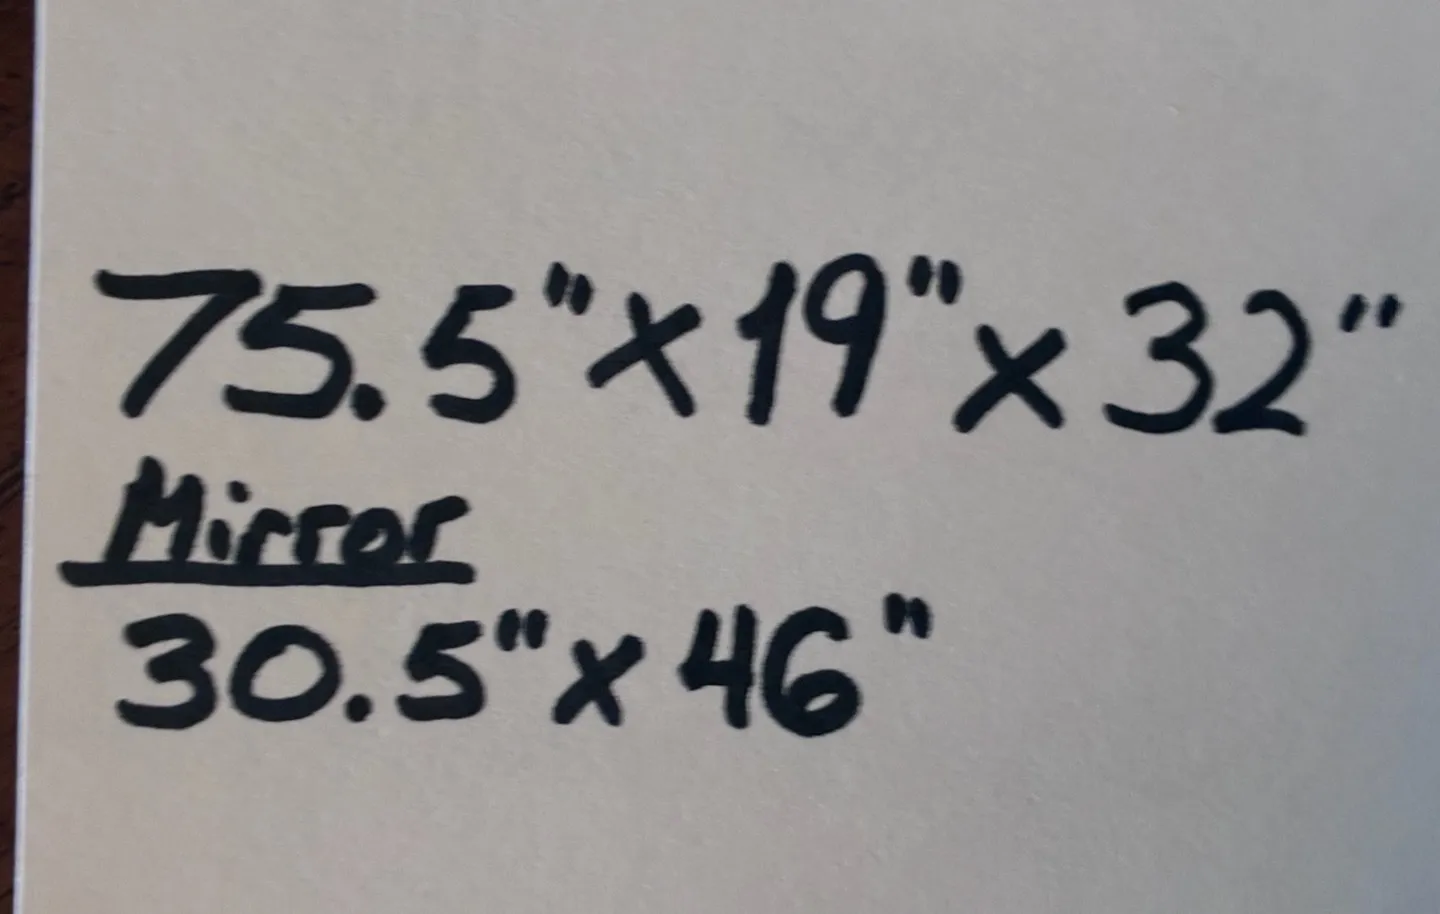 75.5" x 19" x 32"
Mirror
30.5" x 46"